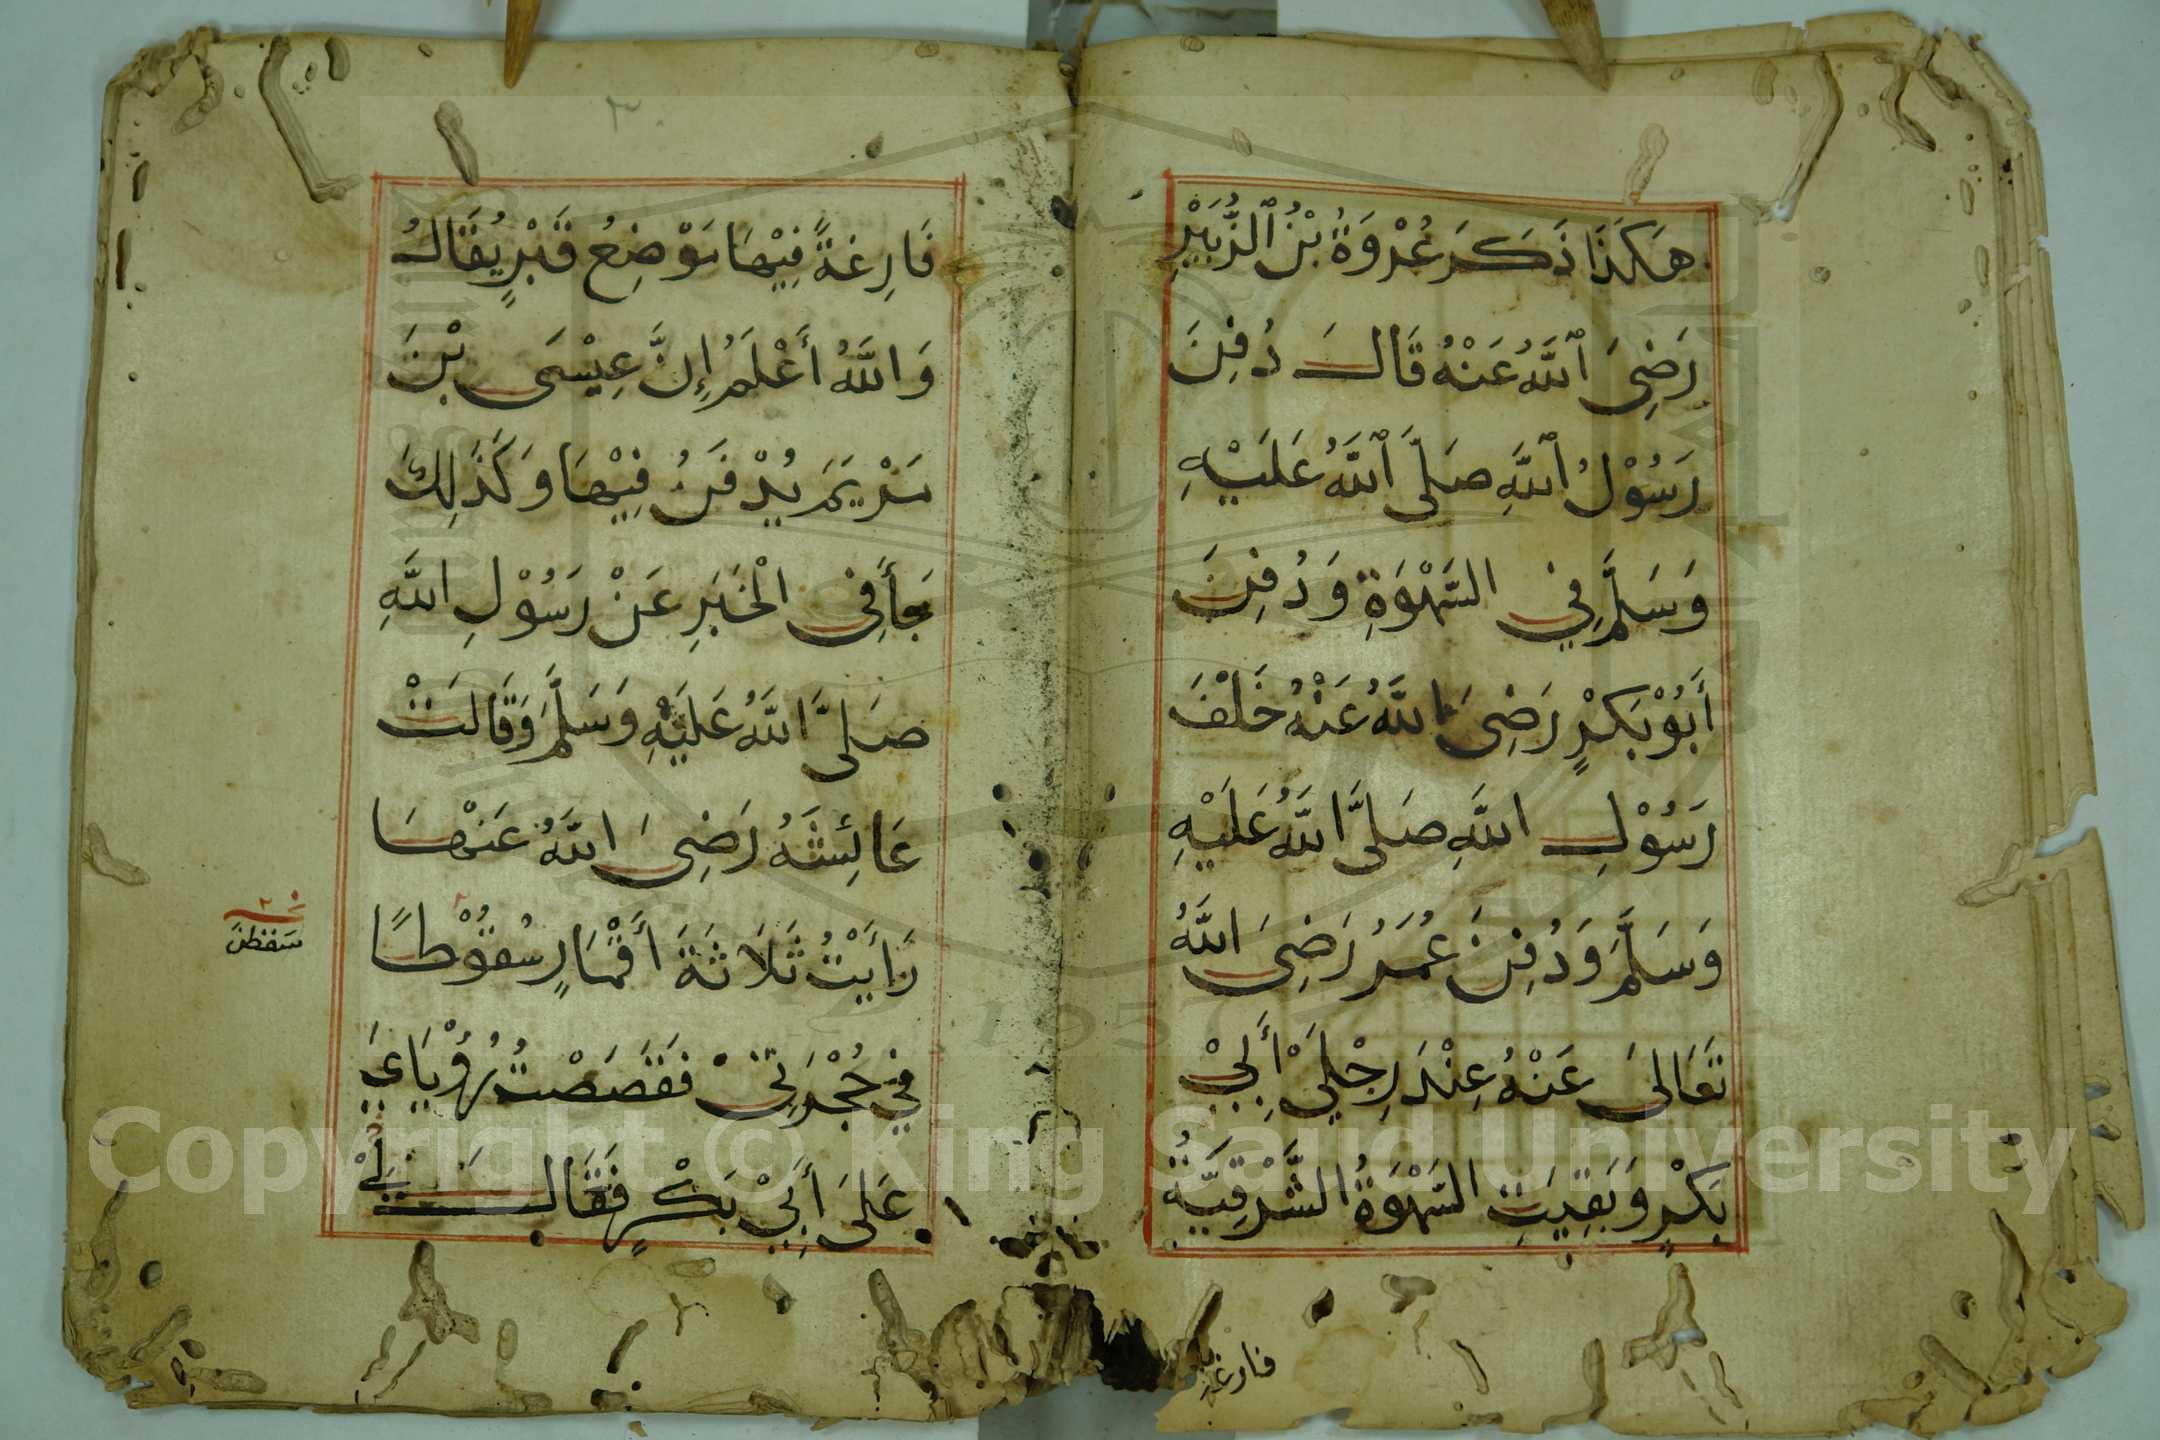 هَكَذَا ذَكَرَ عُرْوَةُ بْنُ ٱلزُّبَيْرِ
رَضِيَ ٱللَّهُ عَنْهُ قَالَ دُفِنَ
رَسُوْلُ ٱللَّهِ صَلَّى ٱللَّهُ عَلَيْهِ
وَسَلَّمَ فِي السَّهْوَةِ وَدُفِنَ
أَبُوْ بَكْرٍ رَضِيَ اللَّهُ عَنْهُ خَلْفَ
رَسُوْلِ اللَّهِ صَلَّى اللَّهُ عَلَيْهِ
وَسَلَّمَ وَدُفِنَ عُمَرُ رَضِيَ اللَّهُ
تَعَالَى عَنْهُ عِنْدَ رِجْلَيْ أَبِيْ
بَكْرٍ وَبَقِيَتِ السَّهْوَةُ الشَّرْقِيَّةُ
فارغة
٣
فَارِغَةً فِيْهَا مَوْضِعُ قَبْرٍ يُقَالُ
وَاللَّهُ أَعْلَمُ إِنَّ عِيْسَى بْنَ
مَرْيَمَ يُدْفَنُ فِيْهَا وَكَذَلِكَ
جَأَ فِي الْخَبَرِ عَنْ رَسُوْلِ اللَّهِ
صَلَّى اللَّهُ عَلَيْهِ وَسَلَّمَ وَقَالَتْ
عَائِشَةُ رَضِيَ اللَّهُ عَنْهَا
رَأَيْتُ ثَلَاثَةَ أَقْمَارٍ سُقُوْطًا
سَقَطْنَ
فِي حُجْرَتِيْ فَقَصَصْتُ رُؤْيَايَ
عَلَى أَبِيْ بَكْرٍ فَقَالَ لِيْ
Copyright © King Saud University
1957